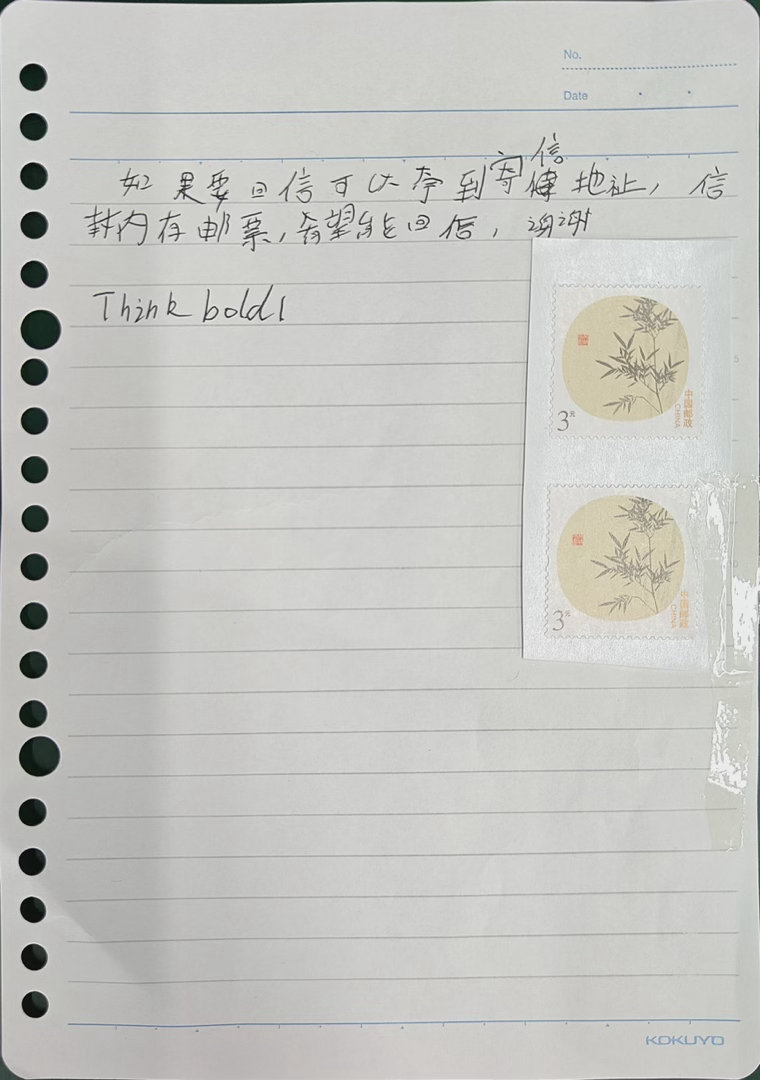 No.
Date
如果要回信可以寄到寄信地址，信
封内存邮票，希望能回信，谢谢
Think bold!
3元
中国邮政
CHINA
3元
中国邮政
CHINA
KOKUYO